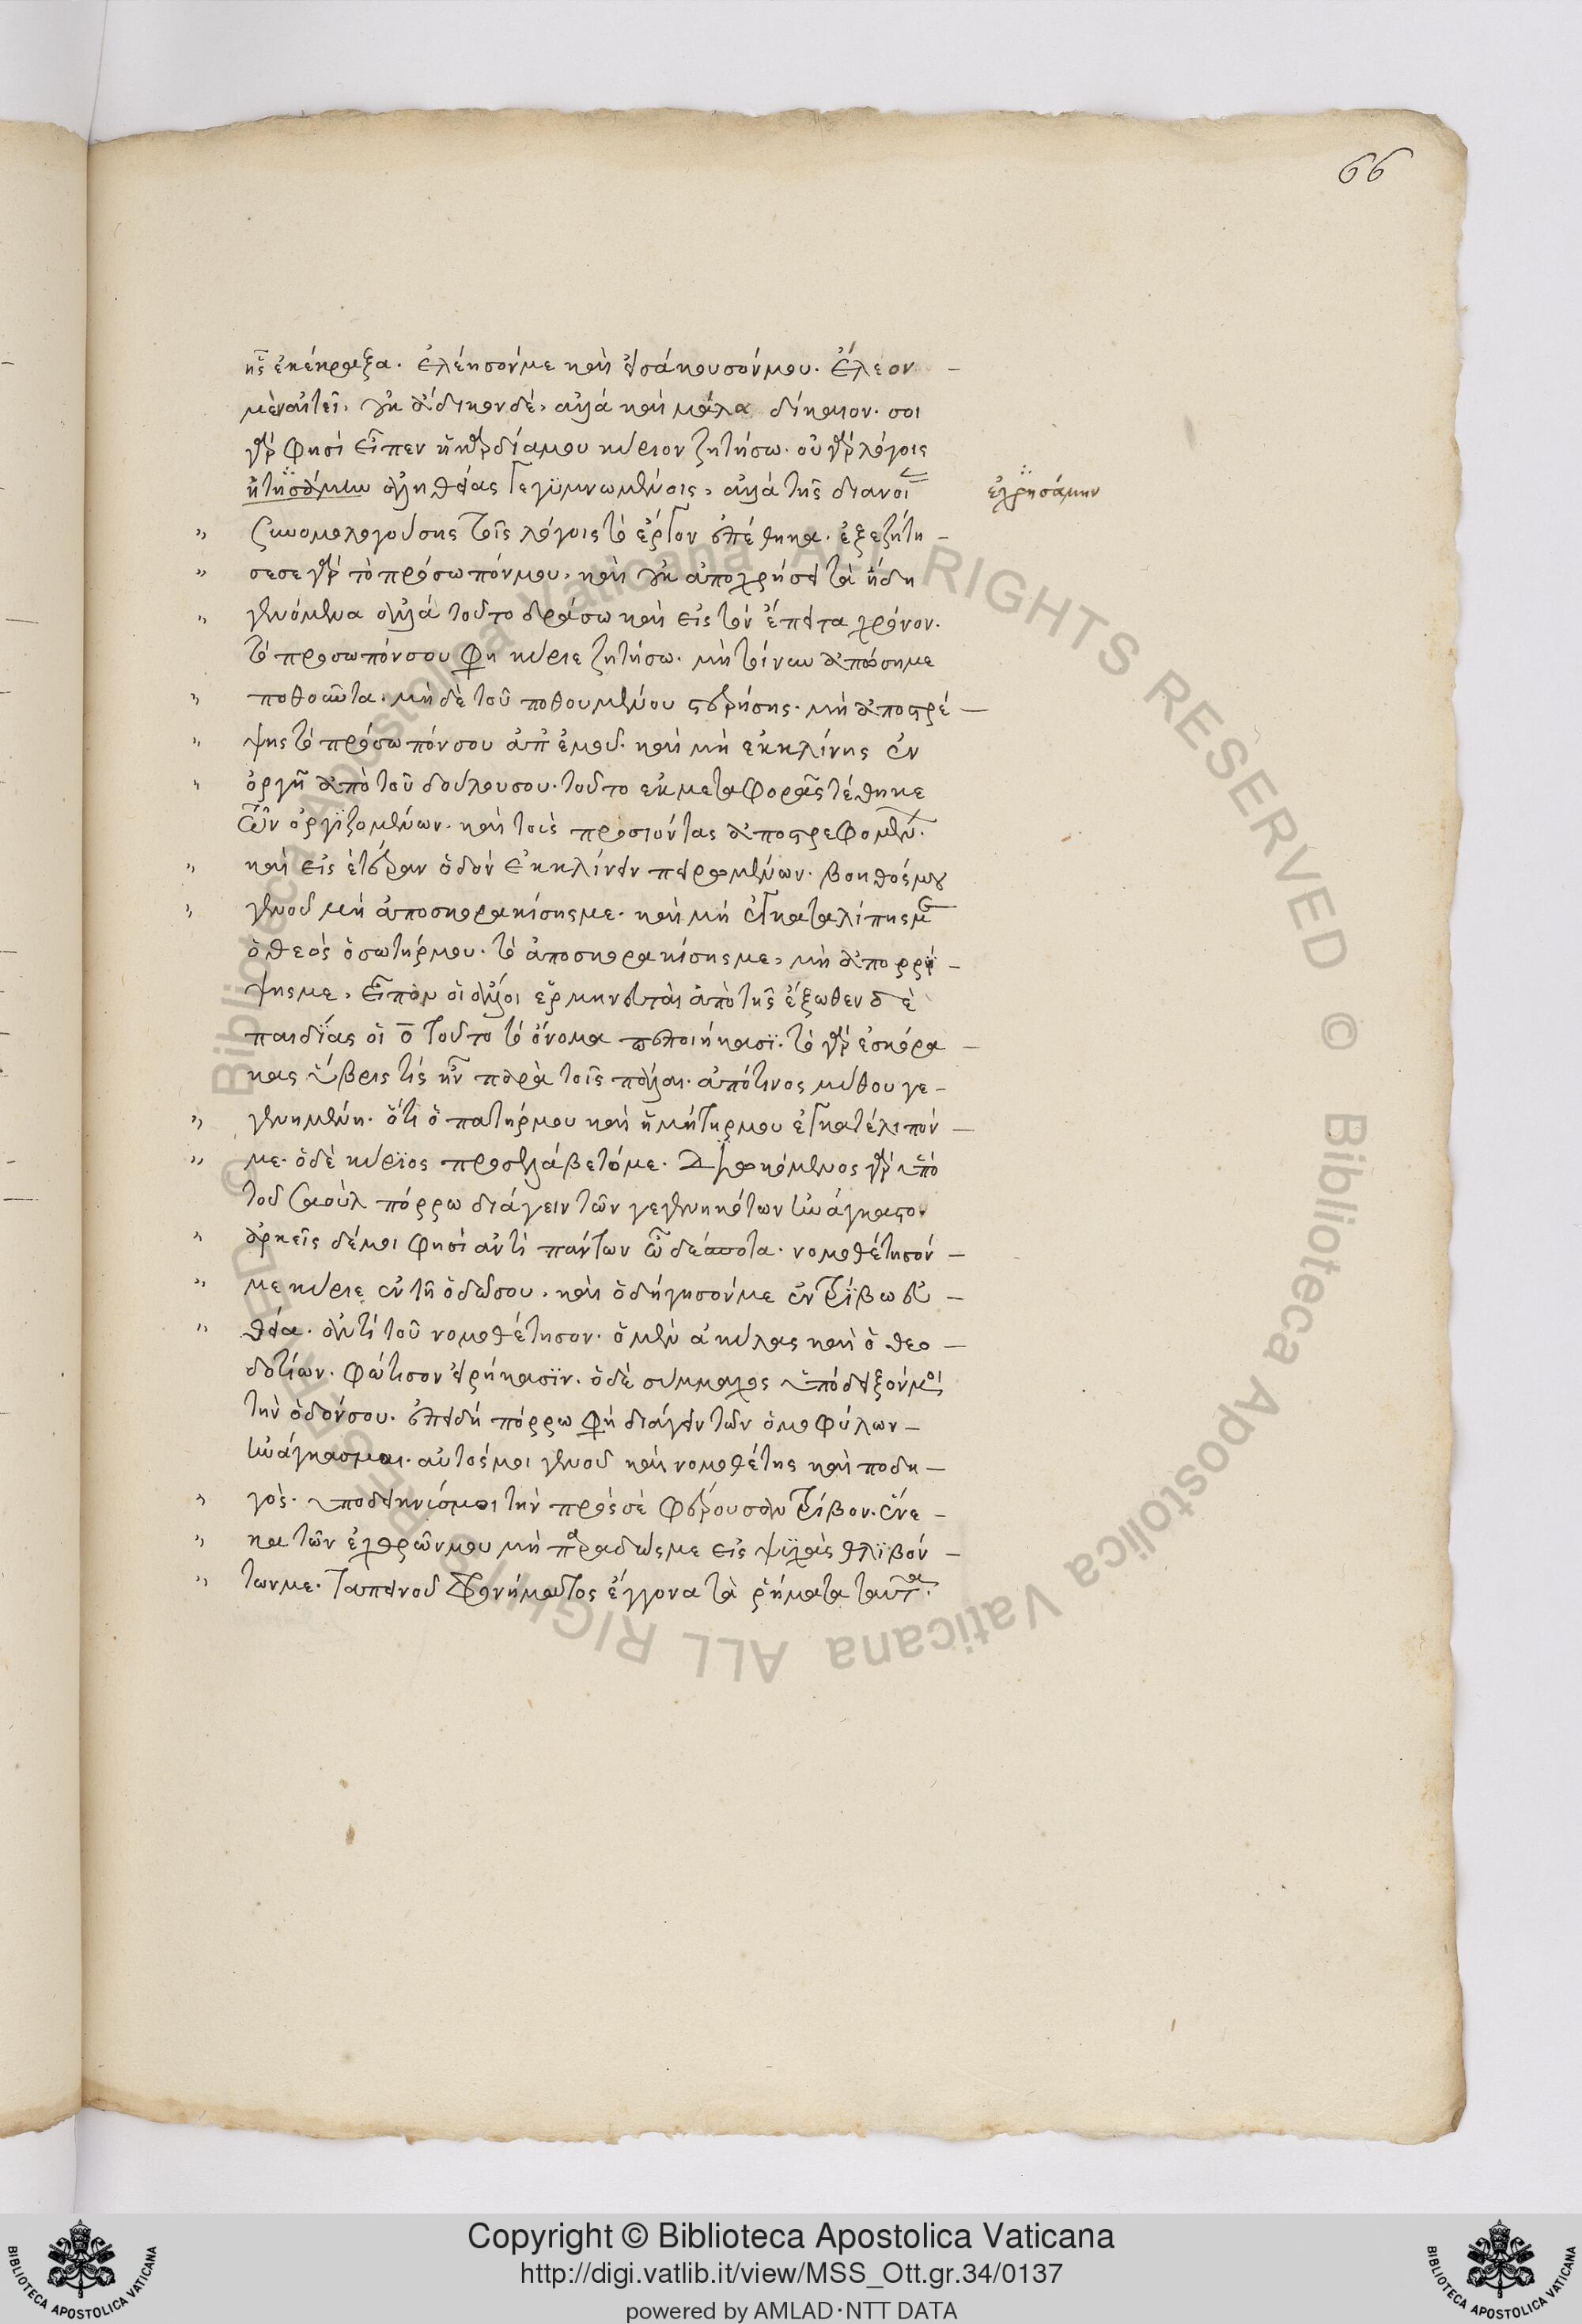 66
ης ἐκέκραξα. ἐλέησόν με καὶ εἰσάκουσόν μου. ἔλεον
μὲν αἰτεῖ, οὐκ ἄδικον δέ, ἀλλὰ καὶ μάλα δίκαιον. σοὶ
γάρ φησι εἶπεν ἡ καρδία μου κύριον ζητήσω. οὐ γὰρ λόγοις
ἀληθείας γεγυμνωμένοις, ἀλλὰ τῆς διανοί
ἐχρησάμην
συνομολογούσης τοῖς λόγοις τὸ ἔργον ἐπέθηκα. ἐξεζήτη -
σε σε γὰρ τὸ πρόσωπόν μου, καὶ οὐκ ἀποχρήσει τὰ ἤδη
γενόμενα ἀλλὰ τοῦτο δράσω καὶ εἰς τὸν ἔπειτα χρόνον.
τὸ πρόσωπόν σου φη κύριε ζητήσω. μὴ τοίνυν ἀπώσῃ με
ποθοῦντα. μὴ δὲ τοῦ ποθουμένου στερήσῃς. μὴ ἀποστρέ -
ψῃς τὸ πρόσωπόν σου ἀπ' ἐμοῦ. καὶ μὴ ἐκκλίνῃς ἐν
ὀργῇ ἀπὸ τοῦ δούλου σου. τοῦτο ἐκ μεταφορᾶς τέθηκε
τῶν ὀργιζομένων. καὶ τοὺς προσιόντας ἀποστρεφομέν.
καὶ εἰς ἑτέραν ὁδὸν ἐκκλίνειν πειρωμένων. βοηθός μου
γενοῦ μὴ ἀποσκορακίσῃς με. καὶ μὴ ἐγκαταλίπῃς με
ὁ θεὸς ὁ σωτήρ μου. τὸ ἀποσκορακίσῃς με, μὴ ἀπορρί -
ψῃς με, εἶπον οἱ ἄλλοι ἑρμηνευταὶ ἀπὸ τῆς ἔξωθεν δὲ
παιδίας οἱ ο τοῦτο τὸ ὄνομα τεθείκασι. τὸ γὰρ ἐς κόρα -
κας ὕβρις τίς ἦν παρὰ τοῖς πάλαι. ἀπό τινος μύθου γε -
γενημένη. ὅτι ὁ πατήρ μου καὶ ἡ μήτηρ μου ἐγκατέλιπόν -
με. ὁ δὲ κύριος προσελάβετό με. διωκόμενος γὰρ ὑπὸ
τοῦ σαοὺλ πόρρω διάγειν τῶν γεγεννηκότων ἠνάγκαστο.
ἀρκεῖς δέ μοι φησὶ ἀντὶ πάντων ὦ δέσποτα. νομοθέτησόν -
με κύριε ἐν τῇ ὁδῷ σου. καὶ ὁδήγησόν με ἐν τρίβω εὐ -
θεία. ἀντὶ τοῦ νομοθέτησον. ὁ μὲν ἀκύλας καὶ ὁ θεο -
δοτίων. φώτισον εἰρήκασιν. ὁ δὲ σύμμαχος ὑπόδειξόν μοι
τὴν ὁδόν σου. ἐπειδὴ πόρρω φη διάγειν τῶν ὁμοφύλων -
ἠνάγκασμαι. αὐτός μοι γενοῦ καὶ νομοθέτης καὶ ποδη -
γός. ὑποδεικνύς μοι τὴν πρὸς σὲ φέρουσαν τρίβον. ἕνε -
κα τῶν ἐχθρῶν μου μὴ παραδῷς με εἰς ψυχὰς θλιβόν -
των με. ταπεινοῦ φρονήματος ἔγγονα τὰ ῥήματα ταῦτα.
Copyright © Biblioteca Apostolica Vaticana
http://digi.vatlib.it/view/MSS_Ott.gr.34/0137
powered by AMLAD·NTT DATA
BIBLIOTECA APOSTOLICA VATICANA
BIBLIOTECA APOSTOLICA VATICANA
© Biblioteca Apostolica Vaticana ALL RIGHTS RESERVED © Biblioteca Apostolica Vaticana ALL RIGHTS RESERVED